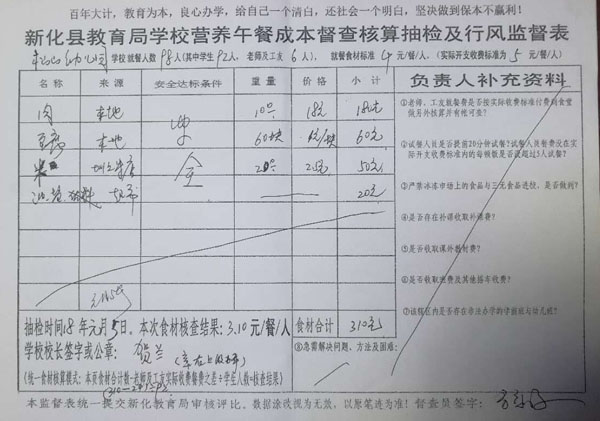 百年大计，教育为本，良心办学，给自己一个清白，还社会一个明白，坚决做到保本不赢利！
新化县教育局学校营养午餐成本督查核算抽检及行风监督表
幼儿园 学校 就餐人数98人(其中学生92人，老师及工友6人)， 就餐食材标准4元/餐/人。(实际开支收费标准为5元/餐/人)
名称 来源 安全达标条件 重量 价格 小计 负责人补充资料
肉 本地 安 18元 180元
豆腐 本地 60块 1元/块 60元
米 全 20 2.5元 50元
油 20元
①老师、工友就餐费是否按实际收费标准付费到食堂
做另外核算并有帐可查？
②试餐人员是否提前20分钟试餐？试餐人员餐费没在实
际开支收费标准内的每顿饭是否没超过3人试餐？
③严禁冰冻市场上的食品与三无食品进校，是否做到？
④是否存在补课收取补课费？
⑤是否收取课外教材费？
⑥是否收取 费及其他搭车收费？
⑦该辖区内是否存在非法办学的学前班与幼儿班？
抽检时间18年元月5日。本次食材核查结果：3.10元/餐/人 食材合计 310元
学校校长签字或公章： 贺兰
⑧急需解决问题、方法及困难：
(统一食材核算模式：本页食材合计数-老师及工友实际收费餐费之差÷学生人数=核查结果)
本监督表统一提交新化教育局审核评比。数据涂改视为无效，以原笔迹为准！ 督查员签字：